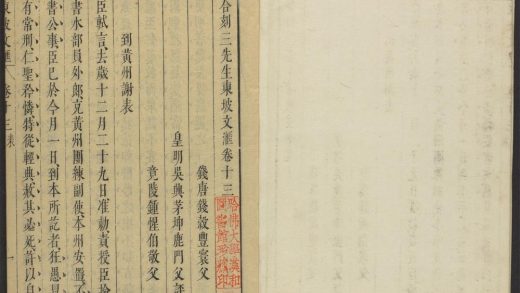 合刻三先生東坡文滙卷十三
哈佛大學漢和
圖書館珍藏印
錢唐錢穀豐寰父
皇明吳興茅坤鹿門父評
竟陵鍾惺伯敬父
到黃州謝表
臣軾言去歲十二月二十九日准勅責授臣檢
書水部員外郎充黃州團練副使本州安置不
書公事臣已於今月一日到本所訖者狂愚冒
有常刑仁聖矜憐特從輕典赦其必死許以自
東坡文滙 卷十三 表 一